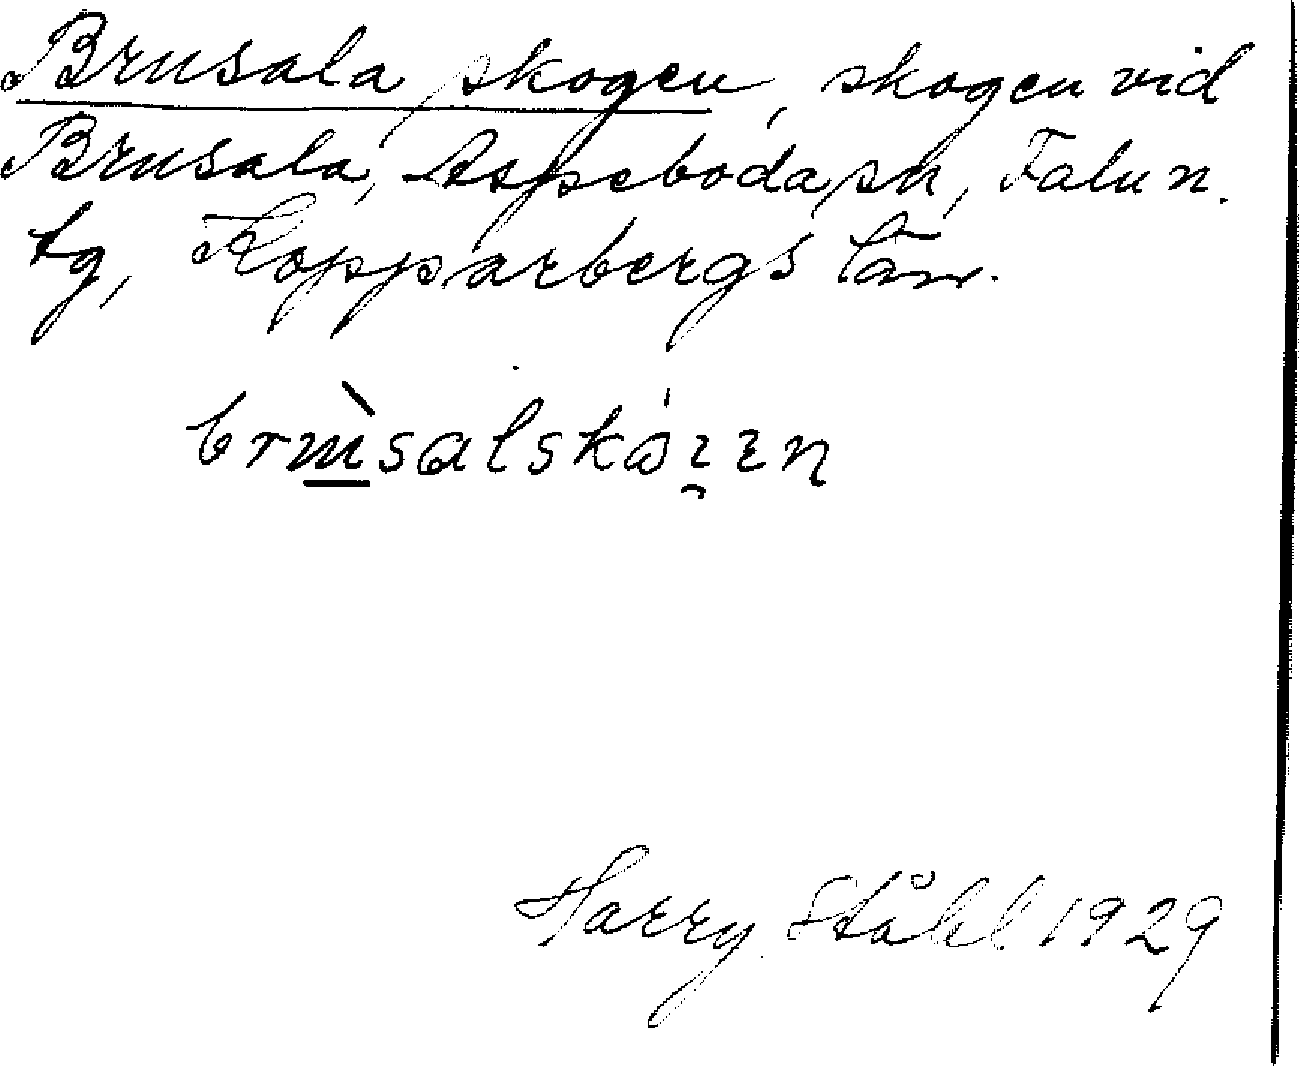 Brusala skogen, skogen vid
Brusala, Aspeboda sn, Falun.
tg, Kopparbergs län.
Harry Ståhl 1929